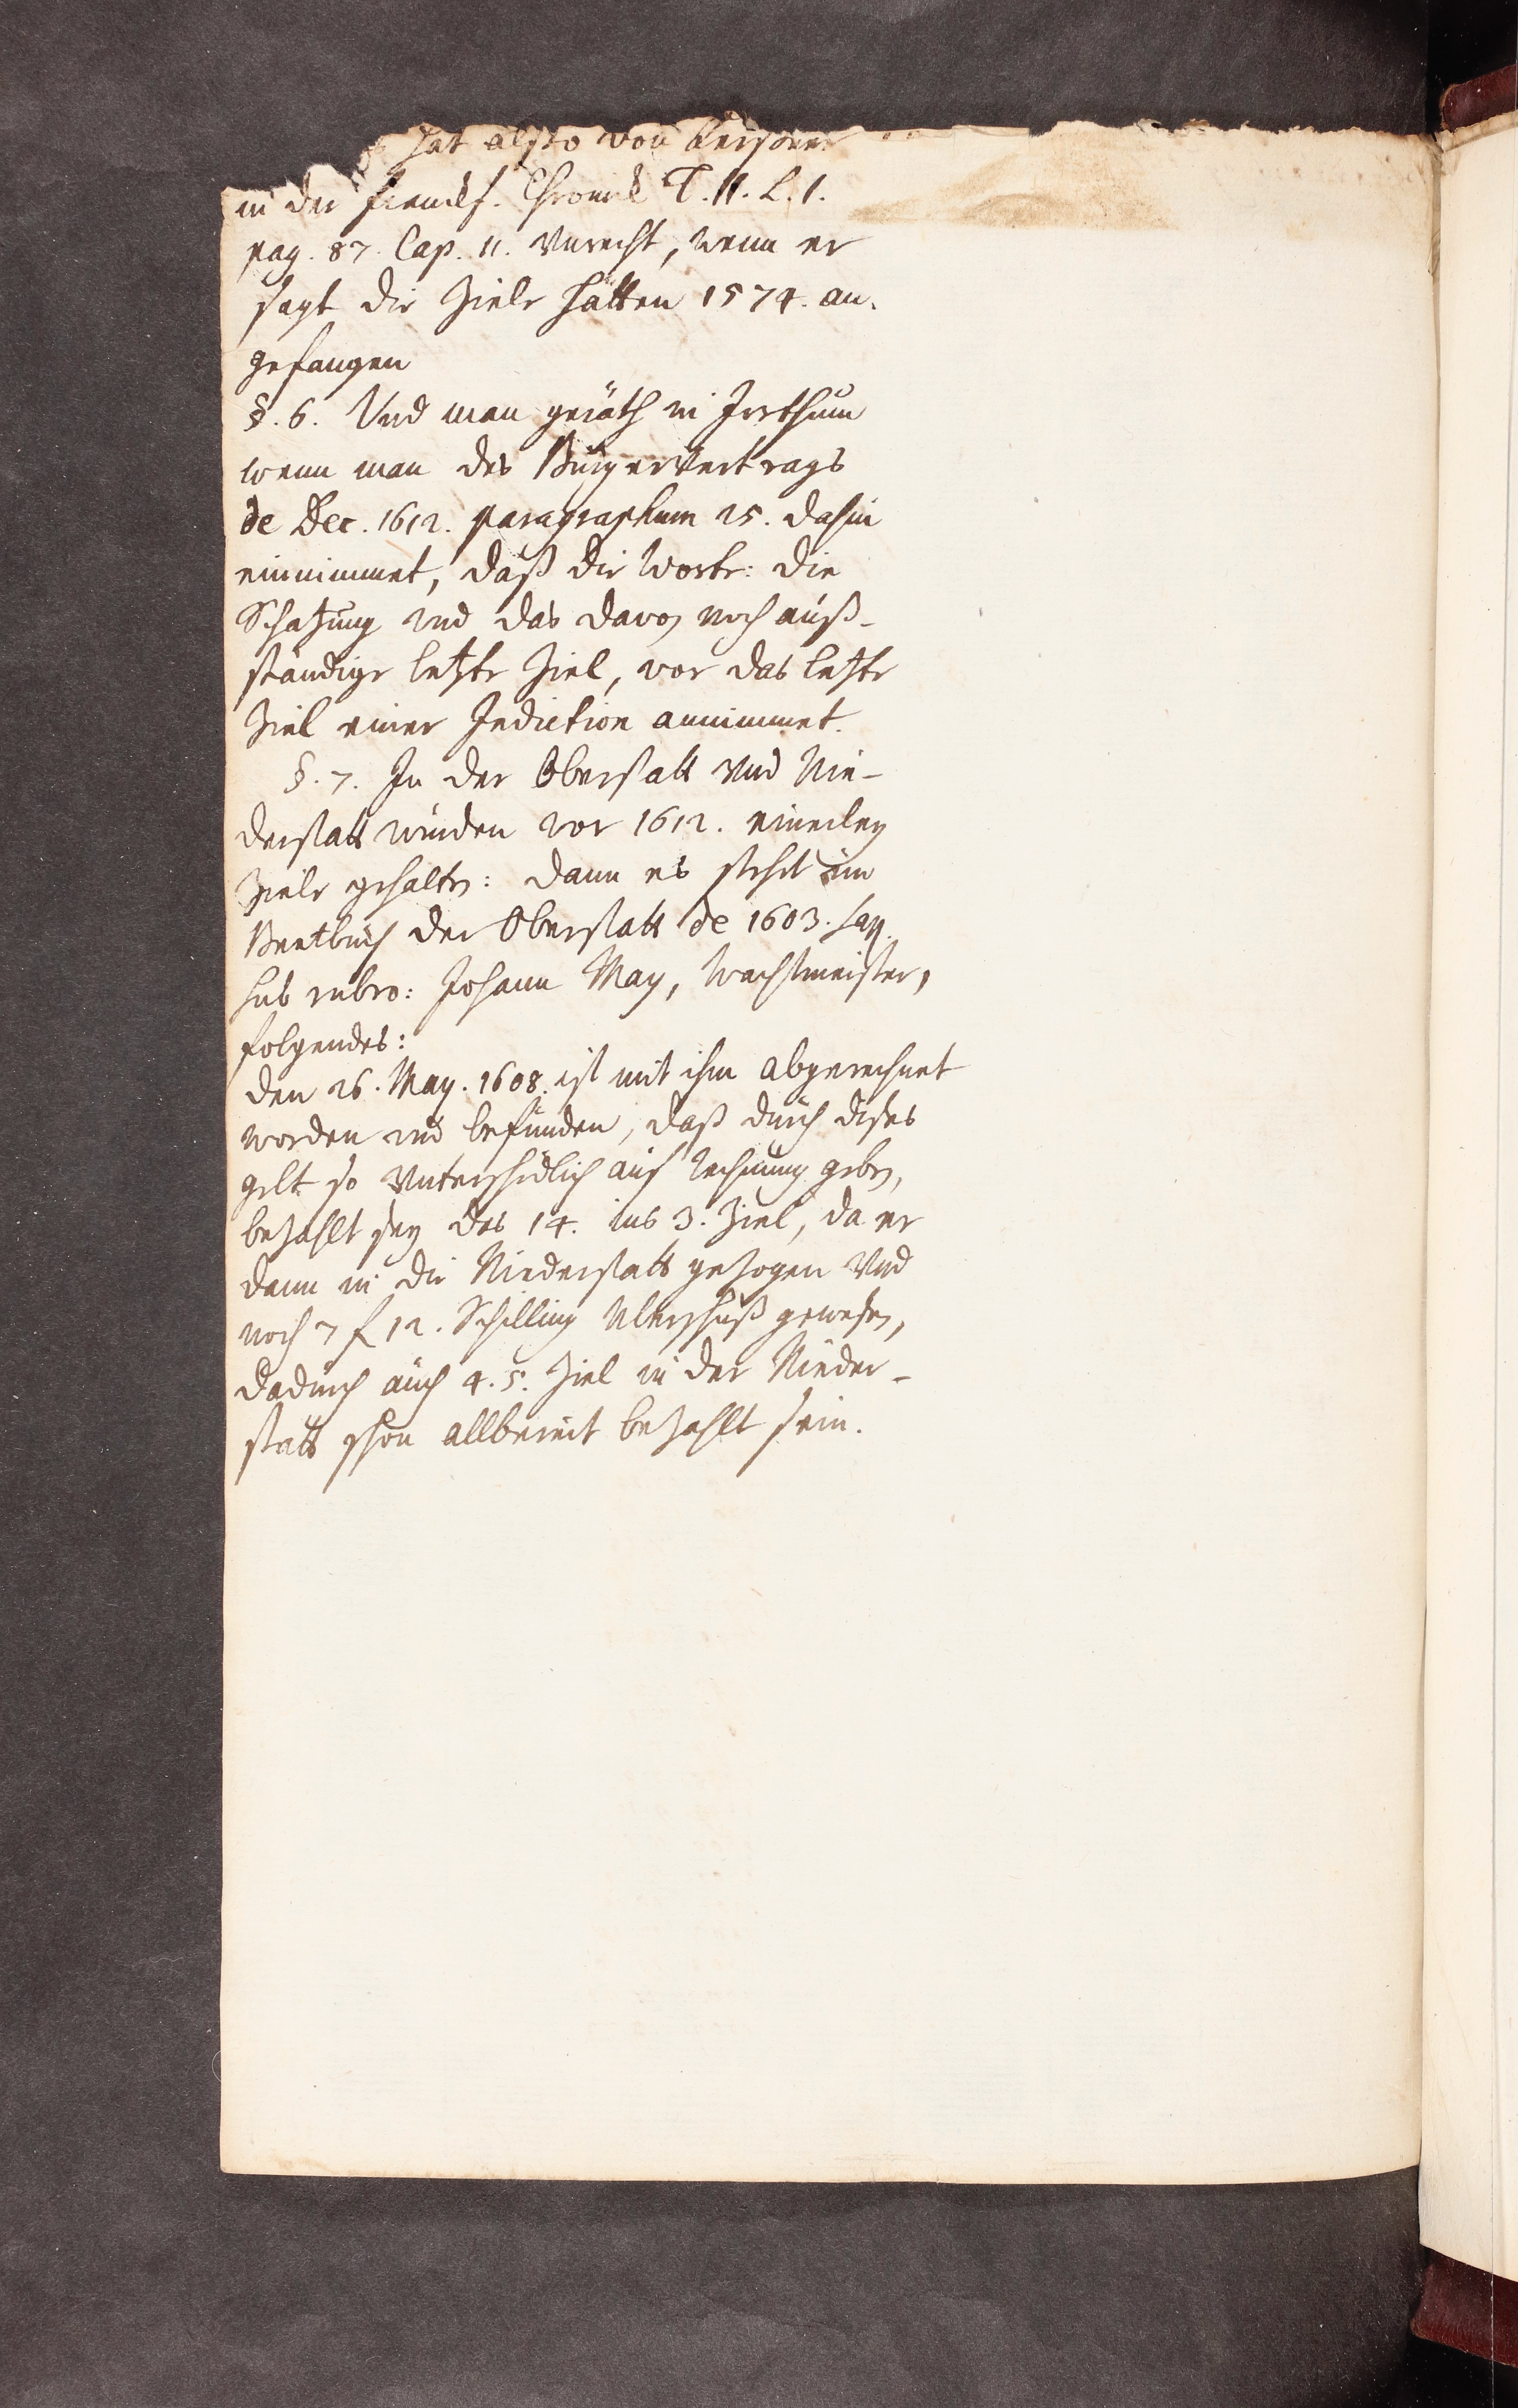 hat alßo von Lerßner
in der francf. Chronik T. II. L. I.
pag. 87. Cap. 11. Vnrecht, wenn er
sagt die Ziele hätten 1574. an-
gefangen
§. 6. Und man geräth in Irrthum
wenn man des Burgervertrags
de Dec. 1612. paragraphum 25. dahin
einnimmet, daß die Worte: die
Schatzung und das davon noch auß-
ständige letzte Ziel, vor das letzte
Ziel einer Indiction annimmet.
§. 7. In der Oberstatt und Nie-
derstatt wurden vor 1612. einerley
Ziele gehalten: dann es stehet im
Beetbuch der Oberstatt de 1603.
sub rubro: Johann May, Wachtmeister,
folgendes:
den 26. May. 1608. ist mit ihm abgerechnet
worden und befunden, daß durch dises
gelt so Vnterschidlich auf rechnung geben,
bezahlt sey des 14. ins 3. Ziel, da er
dann in die Niderstatt gezogen Vnd
noch 7 f 12. Schilling Uberschuß gewesen,
dadurch auch 4. 5. Ziel in der Nieder-
statt schon allbereit bezahlt sein.